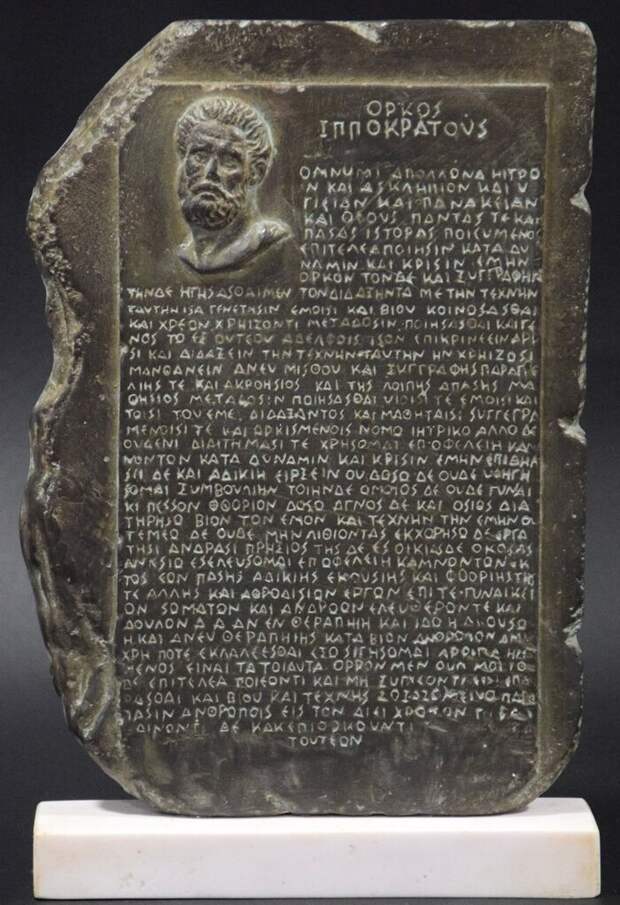 ΟΡΚΟΣ
ΙΠΠΟΚΡΑΤΟΥΣ
ΟΜΝΥΜΙ ΑΠΟΛΛΟΝΑ ΗΙΤΡΟ
Ν ΚΑΙ ΑΣΚΛΗΠΙΟΝ ΚΑΙ Υ
ΓΙΕΙΑΝ ΚΑΙ ΠΑΝΑΚΕΙΑΝ
ΚΑΙ ΘΕΟΥΣ ΠΑΝΤΑΣ ΤΕ ΚΑΙ
ΠΑΣΑΣ ΙΣΤΟΡΑΣ ΠΟΙΕΥΜΕΝΟ
ΕΠΙΤΕΛΕΑ ΠΟΙΗΣΙΝ ΚΑΤΑ ΔΥ
ΝΑΜΙΝ ΚΑΙ ΚΡΙΣΙΝ ΕΜΗΝ
ΟΡΚΟΝ ΤΟΝΔΕ ΚΑΙ ΞΥΓΓΡΑΦΗΝ
ΤΗΝΔΕ ΗΓΗΣΑΣΘΑΙ ΜΕΝ ΤΟΝ ΔΙΔΑΞΑΝΤΑ ΜΕ ΤΗΝ ΤΕΧΝΗΝ
ΤΑΥΤΗΝ ΙΣΑ ΓΕΝΕΤΗΣΙΝ ΕΜΟΙΣΙ ΚΑΙ ΒΙΟΥ ΚΟΙΝΟΣΑΣΘΑΙ
ΚΑΙ ΧΡΕΟΝ ΧΡΗΙΖΟΝΤΙ ΜΕΤΑΔΟΣΙΝ ΠΟΙΗΣΑΣΘΑΙ ΚΑΙ ΓΕ
ΝΟΣ ΤΟ ΕΞ ΟΥΤΕΟΥ ΑΔΕΛΦΟΙΣ ΙΣΟΝ ΕΠΙΚΡΙΝΕΕΙΝ ΑΡΡ
ΣΙ ΚΑΙ ΔΙΔΑΞΕΙΝ ΤΗΝ ΤΕΧΝΗΝ ΤΑΥΤΗΝ ΗΝ ΧΡΗΙΖΟΣΙ
ΜΑΝΘΑΝΕΙΝ ΑΝΕΥ ΜΙΣΘΟΥ ΚΑΙ ΞΥΓΓΡΑΦΗΣ ΠΑΡΑΓΓΕ
ΛΙΗΣ ΤΕ ΚΑΙ ΑΚΡΟΗΣΙΟΣ ΚΑΙ ΤΗΣ ΛΟΙΠΗΣ ΑΠΑΣΗΣ ΜΑ
ΘΗΣΙΟΣ ΜΕΤΑΔΟΣΙΝ ΠΟΙΗΣΑΣΘΑΙ ΥΙΟΙΣΙ ΤΕ ΕΜΟΙΣΙ ΚΑΙ
ΤΟΙΣΙ ΤΟΥ ΕΜΕ ΔΙΔΑΞΑΝΤΟΣ ΚΑΙ ΜΑΘΗΤΑΙΣΙ ΣΥΓΓΕΓΡΑ
ΜΕΝΟΙΣΙ ΤΕ ΚΑΙ ΟΡΚΙΣΜΕΝΟΙΣ ΝΟΜΟ ΙΗΤΡΙΚΟ ΑΛΛΟ ΔΕ
ΟΥΔΕΝΙ ΔΙΑΙΤΗΜΑΣΙ ΤΕ ΧΡΗΣΟΜΑΙ ΕΠ ΟΦΕΛΕΙΗ ΚΑ
ΜΝΟΝΤΟΝ ΚΑΤΑ ΔΥΝΑΜΙΝ ΚΑΙ ΚΡΙΣΙΝ ΕΜΗΝ ΕΠΙ ΔΗΛΗ
ΣΕΙ ΔΕ ΚΑΙ ΑΔΙΚΙΗ ΕΙΡΞΕΙΝ ΟΥ ΔΟΣΟ ΔΕ ΟΥΔΕ ΥΦΗΓΗ
ΣΟΜΑΙ ΞΥΜΒΟΥΛΙΗΝ ΤΟΙΗΝΔΕ ΟΜΟΙΟΣ ΔΕ ΟΥΔΕ ΓΥΝΑΙ
ΚΙ ΠΕΣΣΟΝ ΦΘΟΡΙΟΝ ΔΟΣΟ ΑΓΝΟΣ ΔΕ ΚΑΙ ΟΣΙΟΣ ΔΙΑ
ΤΗΡΗΣΟ ΒΙΟΝ ΤΟΝ ΕΜΟΝ ΚΑΙ ΤΕΧΝΗΝ ΤΗΝ ΕΜΗΝ Ο
ΤΕΜΕΟ ΔΕ ΟΥΔΕ ΜΗΝ ΛΙΘΙΟΝΤΑΣ ΕΚΧΟΡΗΣΟ ΔΕ ΕΡΓΑ
ΤΗΣΙ ΑΝΔΡΑΣΙ ΠΡΗΞΙΟΣ ΤΗΣΔΕ ΕΣ ΟΙΚΙΑΣ ΔΕ ΟΚΟΣΑΣ
ΑΝ ΕΣΙΟ ΕΣΕΛΕΥΣΟΜΑΙ ΕΠ ΟΦΕΛΕΙΗ ΚΑΜΝΟΝΤΟΝ ΕΚ
ΤΟΣ ΕΟΝ ΠΑΣΗΣ ΑΔΙΚΙΗΣ ΕΚΟΥΣΙΗΣ ΚΑΙ ΦΘΟΡΙΗΣ ΤΗΣ
ΤΕ ΑΛΛΗΣ ΚΑΙ ΑΦΡΟΔΙΣΙΟΝ ΕΡΓΟΝ ΕΠΙ ΤΕ ΓΥΝΑΙΚΕΙ
ΟΝ ΣΟΜΑΤΟΝ ΚΑΙ ΑΝΔΡΟΟΝ ΕΛΕΥΘΕΡΟΝ ΤΕ ΚΑΙ
ΔΟΥΛΟΝ Α Δ ΑΝ ΕΝ ΘΕΡΑΠΗΙΗ ΚΑΙ ΙΔΟ Η ΑΚΟΥΣΩ
Η ΚΑΙ ΑΝΕΥ ΘΕΡΑΠΗΙΗΣ ΚΑΤΑ ΒΙΟΝ ΑΝΘΡΟΠΟΝ Α ΜΗ
ΧΡΗ ΠΟΤΕ ΕΚΛΑΛΕΕΣΘΑΙ ΕΞΟ ΣΙΓΗΣΟΜΑΙ ΑΡΡΗΤΑ ΗΓΕΥ
ΜΕΝΟΣ ΕΙΝΑΙ ΤΑ ΤΟΙΑΥΤΑ ΟΡΚΟΝ ΜΕΝ ΟΥΝ ΜΟΙ ΤΟΝ
ΔΕ ΕΠΙΤΕΛΕΑ ΠΟΙΕΟΝΤΙ ΚΑΙ ΜΗ ΞΥΓΧΕΟΝΤΙ ΕΙΗ ΕΠΑ
ΡΑΣΘΑΙ ΚΑΙ ΒΙΟΥ ΚΑΙ ΤΕΧΝΗΣ ΔΟΞΑΖΟΜΕΝΟ ΠΑΡΑ
ΠΑΣΙΝ ΑΝΘΡΟΠΟΙΣ ΕΙΣ ΤΟΝ ΑΙΕΙ ΧΡΟΝΟΝ
ΔΕ ΚΑΙ ΕΠΙΟΡΚΟΥΝΤΙ
ΤΟΥΤΕΟΝ